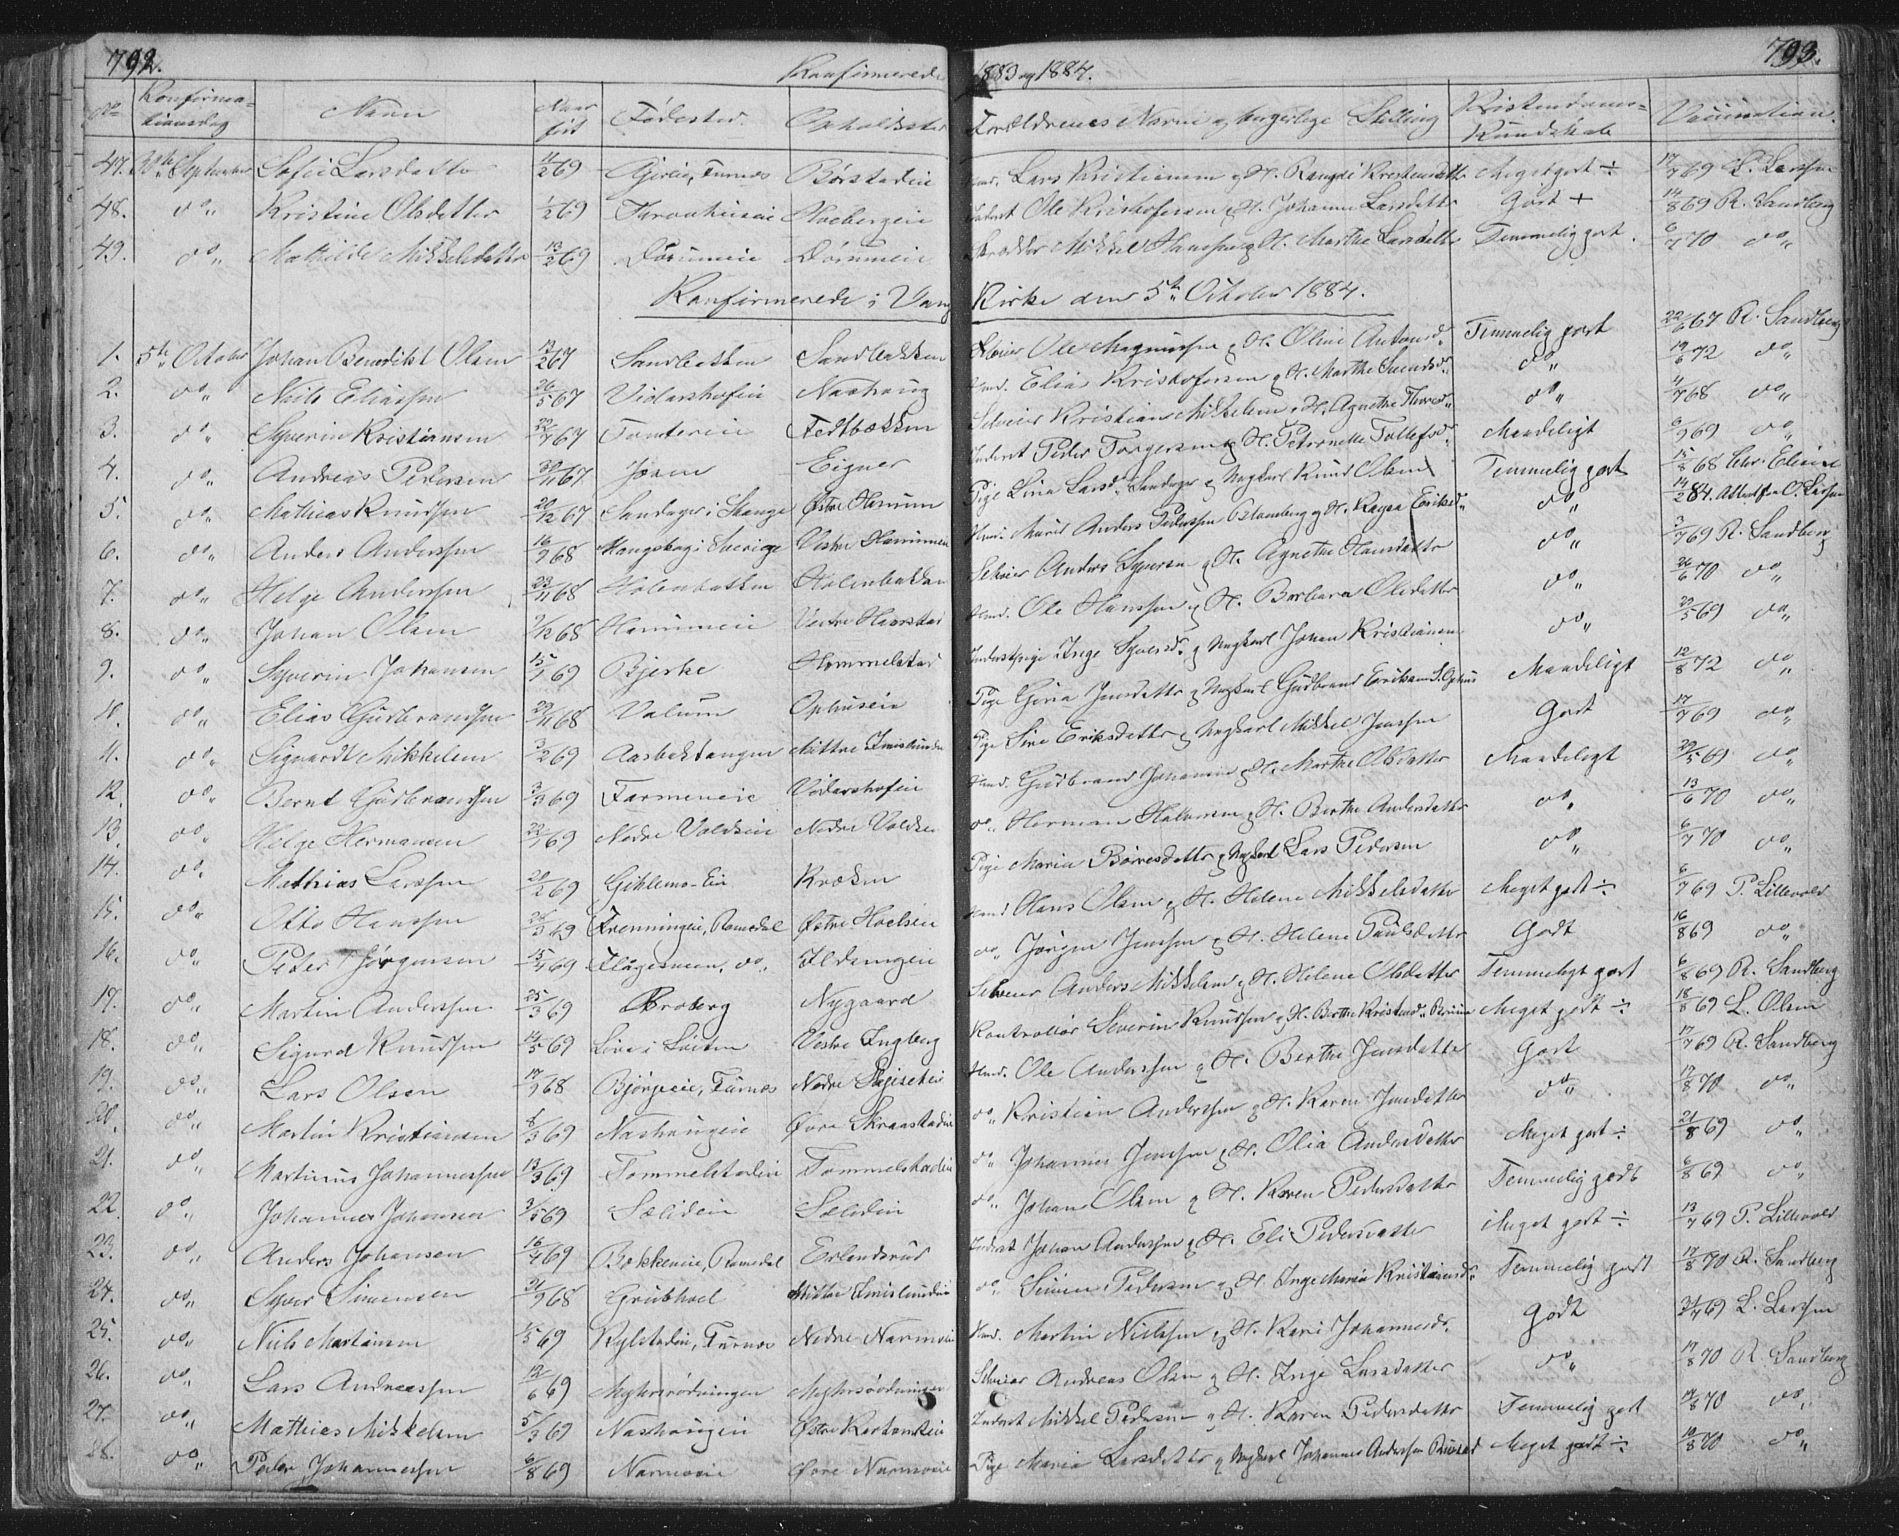 792. Konfirmerede 1883 og 1884. 793.
No Konfirmationsdag Navn Naar født Fødested Opholdssted Forældrenes Navne og borgerlige Stilling Kristendoms-Kundskab Vaccination.
47. 30te September Sofie Larsdatter 11/2 69 Furnes Børstadeie Lars Kristiansen og H. Kristensdatter Meget godt ÷ 17/7 69 L. Larssen
48. do „ Kristine Olsdatter 1/2 69 Inderst Ole Kristofersen og H. Johanne Larsdatter Godt + 14/8 69 R. Sandberg
49. do „ Mathilde Mikkelsdatter 13/2 69 Dørumeie Dørumeie Skrædder Mikkel Hanssen og H. Marthe Larsdatter Temmelig godt. 6/7 70 do „
Konfirmerede i Vang Kirke den 5te Oktober 1884.
1. 5te October Johan Benedikt Olsen 13/2 67 Sandbakken Sandbakken Selveier Ole Magnussen og H. Oline Antonsd. Temmelig godt 22/6 67 R. Sandberg
2. do „ Nils Eliassen 26/5 67 Vidarshofeie Nashaug Husmd. Elias Kristofersen og H. Marthe do „ 19/6 72 do „
3. do „ Syverin Kristiansen 22/7 67 Tomtereie Fedtbækken Selveier Kristian Mikkelsen og H. Agnethe do „ 4/7 68 do „
4. do „ Andreas Pedersen 30/11 67 Eigner Inderst Peder Torgersen og H. Petronelle Tollefsd. Maadeligt 9/9 69 do „
5. do „ Mathias Knudsen 20/12 67 Sandager i Stange Østre Hommen Pige Lina Larsd. Sandager og Ungkarl Knud Olsen Temmelig godt 15/8 68 Chr. Elisen
6. do „ Anders Anderssen 16/9 68 Mangskog i Sverige Vestre Hommen Anders Pederssen og H. Kaysa Eriksd. do „ 14/2 84. Attest fra O. Larsen
7. do „ Helge Anderssen 23/11 68 Holenbakken Holenbakken Selveier Anders Syversen og H. Agnethe Hansdatter do „ 3/7 69 R. Sandberg
8. do „ Johan Olsen 7/12 68 Hommeneie Husmd. Ole Hanssen og H. Barbara Olsdatter do „ 26/6 70 do „
9. do „ Syverin Johansen 15/1 69 Bjerke Hommelstad Inderstpige Inge Syversd. og Ungkarl Johan Kristiansen do „ 20/5 69 do „
10. do „ Elias Gudbrandssen 29/11 68 Valum Ophuseie Pige Gina Jensdatter og Ungkarl Gudbrand Eriksen Maadeligt 12/8 72 do „
11. do „ Sigvardt Mikkelsen 3/2 69 Aasbaktangen Mittre Imislunden Pige Sine Eriksdatter og Ungkarl Mikkel Jenssen Godt 17/7 69 do „
12. do „ Bernt Gudbrandssen 3/3 69 Farmeneie Vidarshofeie Husmd. Gudbrand Johansen og H. Marthe Olsdatter Maadeligt 20/5 69 do „
13. do „ Helge Hermansen 22/1 69 Nedre Voldseie Nedre Voldseie do „ Herman Halvorsen og H. Berthe Andersdatter do „ 13/6 70 do „
14. do „ Mathias Larssen 20/2 69 Gihlemo-Eie Kræken Pige Maria Børresdatter og Ungkarl Lars Pedersen do „ 6/7 70 do „
15. do „ Otto Hanssen 26/3 69 Trenningeie, Romedal Østre Hoelseie Husmd Hans Olsen og H. Helene Mikkelsdatter Meget godt ÷ 6/7 69 P. Lillevold
16. do „ Peter Jørgensen 15/4 69 do „ Ildengeie do „ Jørgen Jenssen og H. Helene Paulsdatter Godt 16/8 69 do „
17. do „ Martin Anderssen 25/3 69 Broberg Nygaard Selveier Anders Mikkelsen og H. Helene Olsdatter Temmeligt godt 6/8 69 R. Sandberg
18. do „ Sigurd Knudssen 14/5 69 Lie i Løiten Vestre Ingberg Kontrollør Severin Knudssen og H. Berthe Meget godt ÷ 18/8 69 L. Olsen
19. do „ Lars Olsen 17/9 68 Bjørgeeie, Furnes Nedre Husmd. Ole Anderssen og H. Berthe Jensdatter Godt 17/7 69 R. Sandberg
20. do „ Martin Kristiansen 8/3 69 Nashaugeie Øvre Skraastadeie do „ Kristian Anderssen og H. Karen Jensdatter do „ 17/8 70 do „
21. do „ Martinus Johannessen 13/3 69 Tommelstadeie Tommelstadeie do „ Johannes Jenssen og H. Olia Andersdatter Meget godt ÷ 21/8 69 do „
22. do „ Johannes Johansen 3/5 69 Sælideie Sælideie do „ Johan Olsen og H. Karen Pedersdatter Temmelig godt 6/8 69 do „
23. do „ Anders Johansen 16/4 69 Bækkeneie, Romedal Erlandsrud Inderst Johan Anderssen og H. Eli Pedersdatter Meget godt ÷ 13/7 69 P. Lillevold
24. do „ Syver Simensen 21/9 68 Grubhoel Mittre Imislundeie do „ Simen Pedersen og H. Inge Maria Kristiansd. Temmelig godt 17/8 70 R. Sandberg
25. do „ Nils Martinsen 1/5 69 Kylstadeie, Furnes Nedre Narmoeie Husmd. Martin Nielssen og H. Kari Johannesd. Godt 31/7 69 L. Larssen
26. do „ Lars Andreassen 12/6 69 Myhrsrødningen Myhrsrødningen Selveier Andreas Olsen og H. Inge Larsdatter do „ 17/8 70 R. Sandberg
27. do „ Mathias Mikkelsen 5/3 69 Nashaugeie Østre Inderst Mikkel Pedersen og H. Karen Pedersdatter Temmelig godt 19/8 70 do „
28. do „ Peder Johannessen 6/8 69 Narmoeie Øvre Narmoeie Pige Maria Larsdatter og Ungkarl Johannes Anderssen Meget godt ÷ 10/8 70 do „